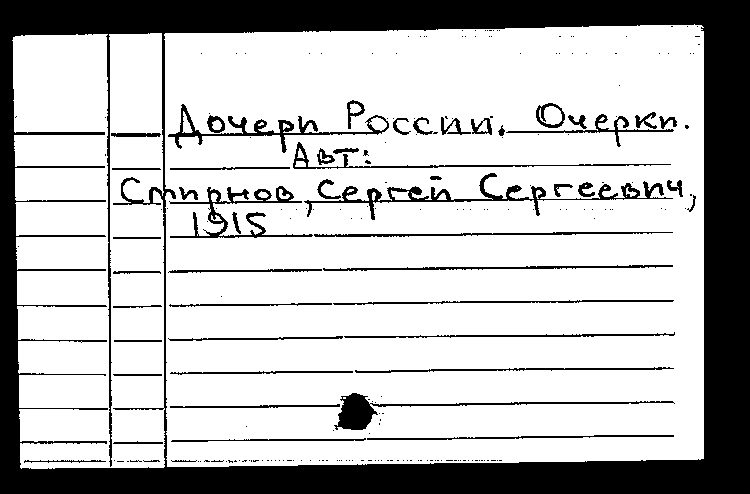 Дочери России. Очерки.
Авт:
Смирнов, Сергей Сергеевич,
1915